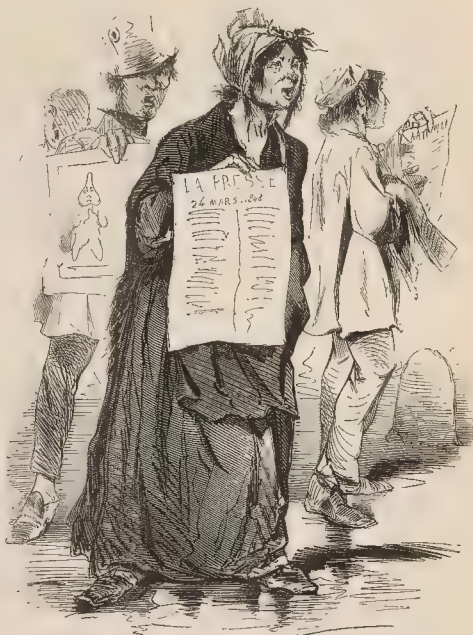 LA PRESSE
24 MARS 1848